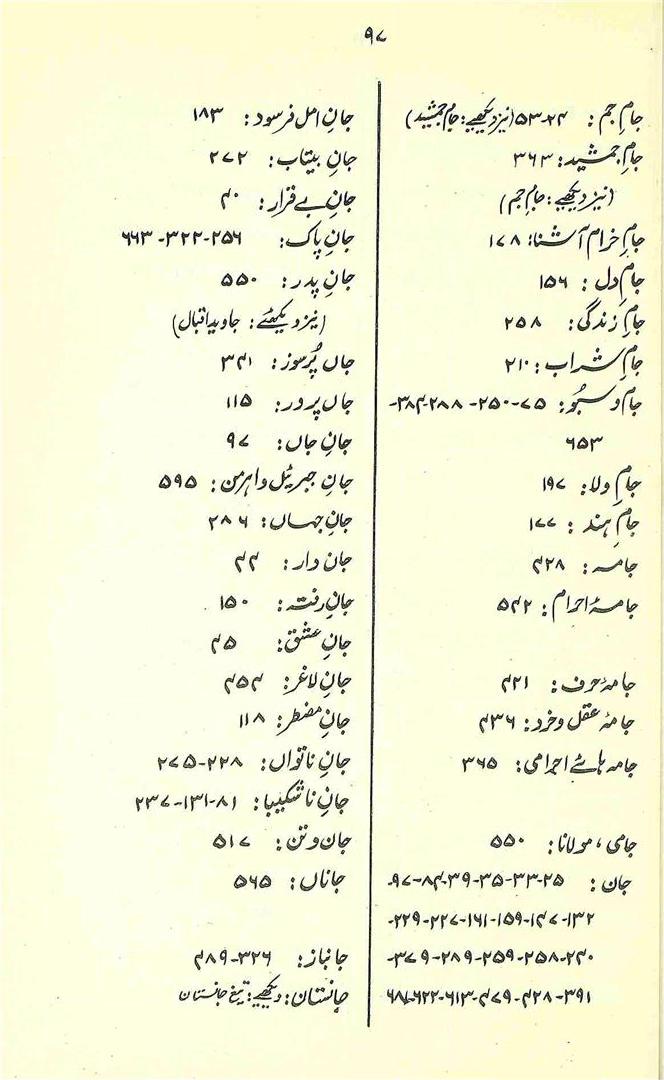 ۹۷
جامِ جم: ۲۴-۵۳ (نیز دیکھیے: جامِ جمشید)
جامِ جمشید: ۳۶۳
(نیز دیکھیے: جامِ جم)
جامِ خرام آشنا: ۱۷۸
جامِ دل: ۱۵۶
جامِ زندگی: ۲۵۸
جامِ شراب: ۲۱۰
جام و سبُو: ۷۵-۲۵۰-۲۸۸-۳۸۴-
۶۵۳
جامِ ولا: ۱۹۷
جامِ ہند: ۱۷۷
جامہ: ۴۲۸
جامۂ احرام: ۵۴۲
جامۂ حرف: ۴۲۱
جامۂ عقل و خرد: ۴۳۶
جامہ ہائے احرامی: ۳۶۵
جامی، مولانا: ۵۵۰
جان: ۲۵-۳۳-۳۵-۳۹-۸۴-۹۷-
۱۳۲-۱۴۷-۱۵۹-۱۶۱-۲۲۷-۲۲۹-
۲۴۰-۲۵۸-۲۵۹-۲۸۹-۳۷۹-
۳۹۱-۴۲۸-۴۷۹-۶۱۳-۶۲۲-۶۸۷
جانِ امل فرسود: ۱۸۳
جانِ بیتاب: ۲۷۲
جانِ بے قرار: ۴۰
جانِ پاک: ۲۵۶-۳۲۲-۶۶۳
جانِ پدر: ۵۵۰
(نیز دیکھئے: جاوید اقبال)
جاں پُرسوز: ۳۴۱
جاں پرور: ۱۱۵
جانِ جاں: ۹۷
جانِ جبرئیل و اہرمن: ۵۹۵
جانِ جہاں: ۲۸۶
جان دار: ۴۴
جانِ رفتہ: ۱۵۰
جانِ عشق: ۴۵
جانِ لاغر: ۴۵۴
جانِ مضطر: ۱۱۸
جانِ ناتواں: ۲۲۸-۲۷۵
جانِ ناشکیبا: ۸۱-۱۳۱-۲۳۷
جان و تن: ۵۱۷
جاناں: ۵۶۵
جانباز: ۳۲۶-۴۸۹
جانستان: دیکھیے: تیغ جانستان